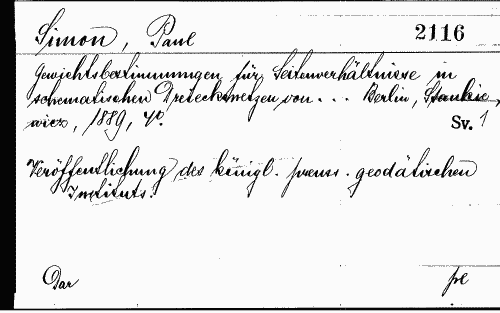 Simon, Paul 2116
Gewichtsbestimmungen für Seitenverhältnisse in
schematischen Dreiecksnetzen von ... Berlin, Stankie-
wicz, 1889, 4º.
Sv. 1
Veröffentlichung des königl. preuss. geodätischen
Instituts.
Dar